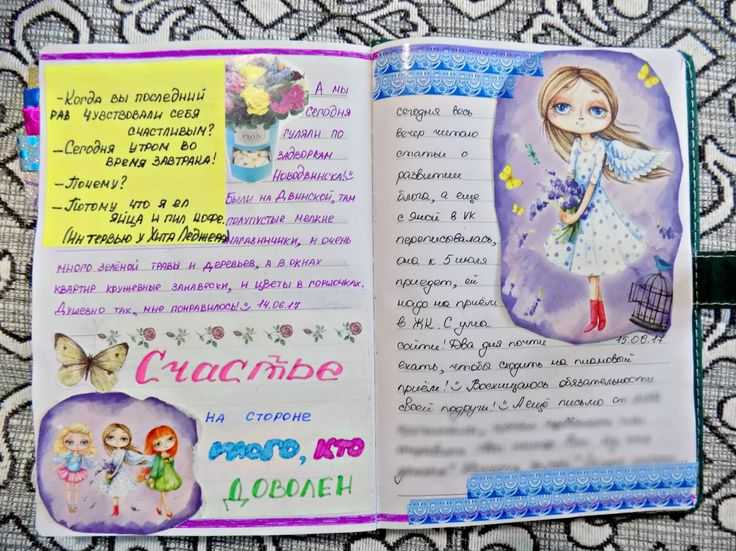 - Когда вы последний
раз чувствовали себя
счастливым?
- Сегодня утром во
время завтрака!
- Почему?
- Потому что я ел
яйца и пил кофе.
(Интервью у Хита Леджера)
А мы
сегодня
гуляли по
задворкам
Новодвинска!
Были на Двинской, там
полупустые мелкие
магазинчики, и очень
много зелёной травы и деревьев, а в окнах
квартир кружевные занавески, и цветы в горшочках.
Душевно так, мне понравилось! 14.06.17
Счастье
на стороне
того, кто
доволен
сегодня весь
вечер читаю
статьи о
развитии
блога, а ещё
с Яной в VK
переписовалась,
она к 5 июля
приедет, ей
надо на приём
в ЖК. С ума
15.06.17
сойти! Два дня почти
ехать, чтобы сходить на плановый
приём! Восхищаюсь обязательности
своей подруги! А ещё письмо от